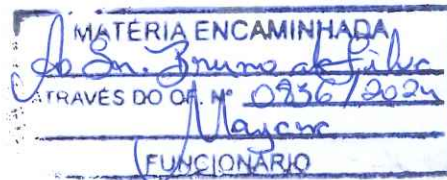 MATÉRIA ENCAMINHADA
Ao Sr. Bruno da Silva
ATRAVÉS DO OF. Nº 0836/2024
Mayara
FUNCIONÁRIO